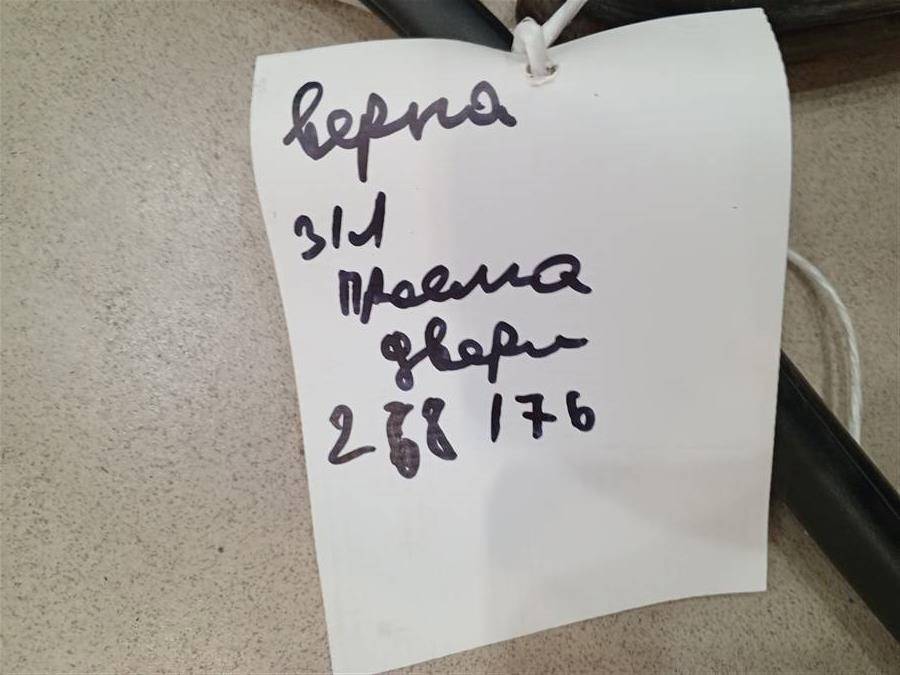 Верна
З/Л
проема
двери
176